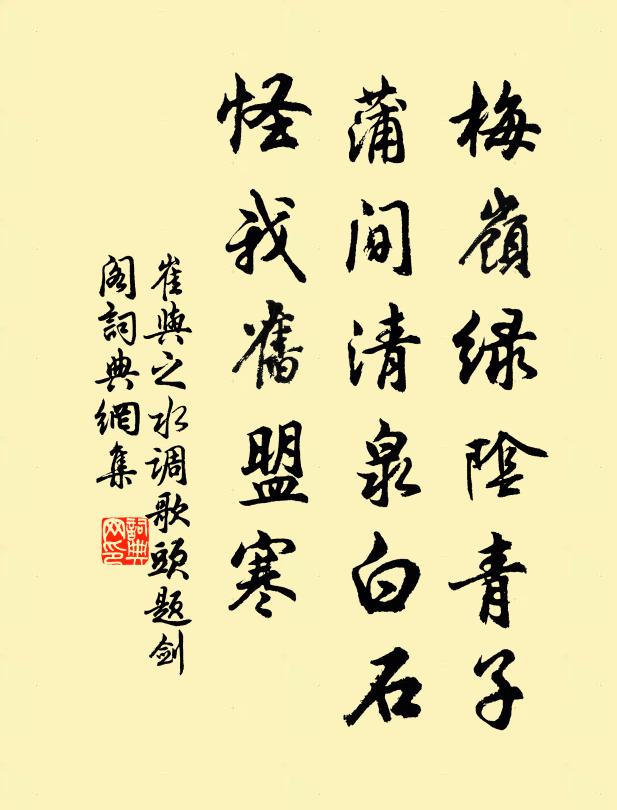 梅嶺綠陰青子
蒲間清泉白石
怪我舊盟寒
崔與之水调歌頭题劍
阁詞典網集
詞典
网印